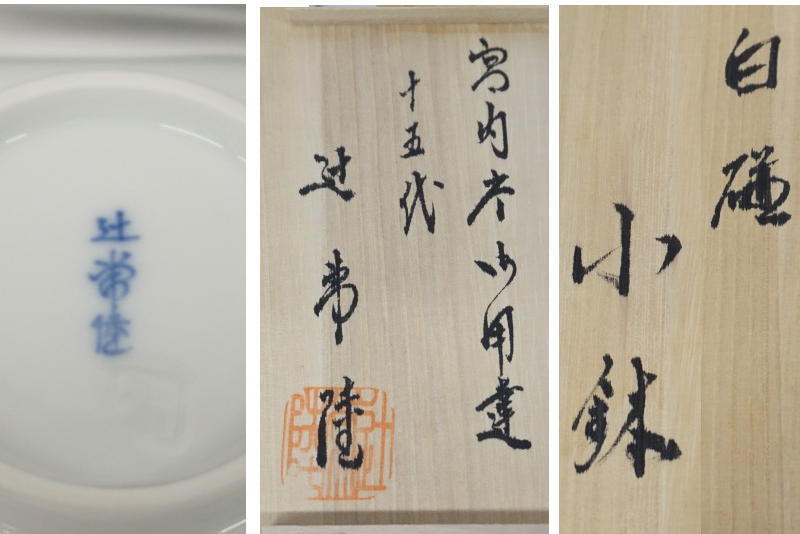 辻常陸
宮内庁御用達
十五代
辻常陸
白磁
小鉢